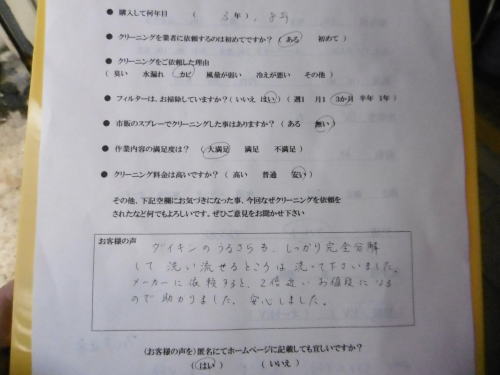 ● 購入して何年目 ( 3年)、8年
● クリーニングを業者に依頼するのは初めてですか? (ある 初めて)
● クリーニングをご依頼した理由
(臭い 水漏れ カビ 風量が弱い 冷えが悪い その他 )
● フィルターは、お掃除していますか? (いいえ はい) (週1 月1 3か月 半年 1年)
● 市販のスプレーでクリーニングした事はありますか? (ある 無い)
● 作業内容の満足度は? (大満足 満足 不満足)
● クリーニング料金は高いですか? (高い 普通 安い)
その他、下記空欄にお気づきになった事、今回なぜクリーニングを依頼を
されたなど何でもよろしいです。ぜひご意見をお聞かせ下さい
お客様の声
ダイキンのうるさらを、しっかり完全分解
して 洗い流せるところは 洗って下さいました。
メーカーに依頼すると、2倍近いお値段になる
ので助かりました。安心しました。
(お客様の声)匿名にてホームページに記載しても宜しいですか?
(はい) (いいえ)